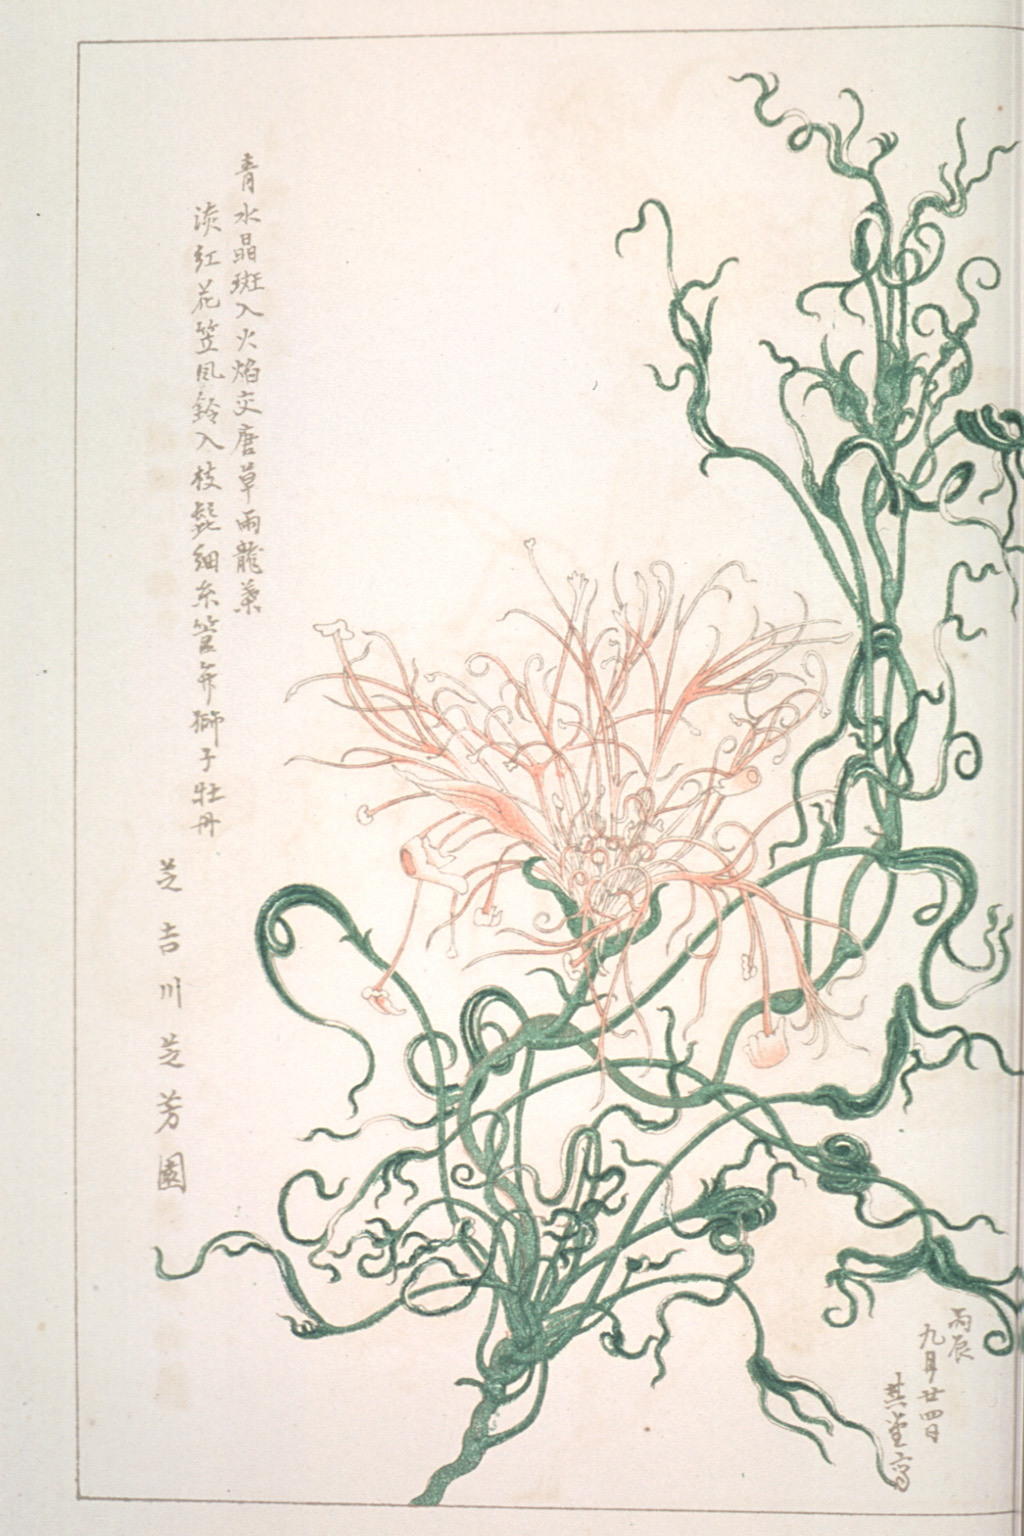 青水晶斑入火焰交唐草雨龍葉
淡紅花笠風鈴入枝髭細糸管弁獅子牡丹
芝吉川芝芳園
丙辰
九月廿四日
其堂寫